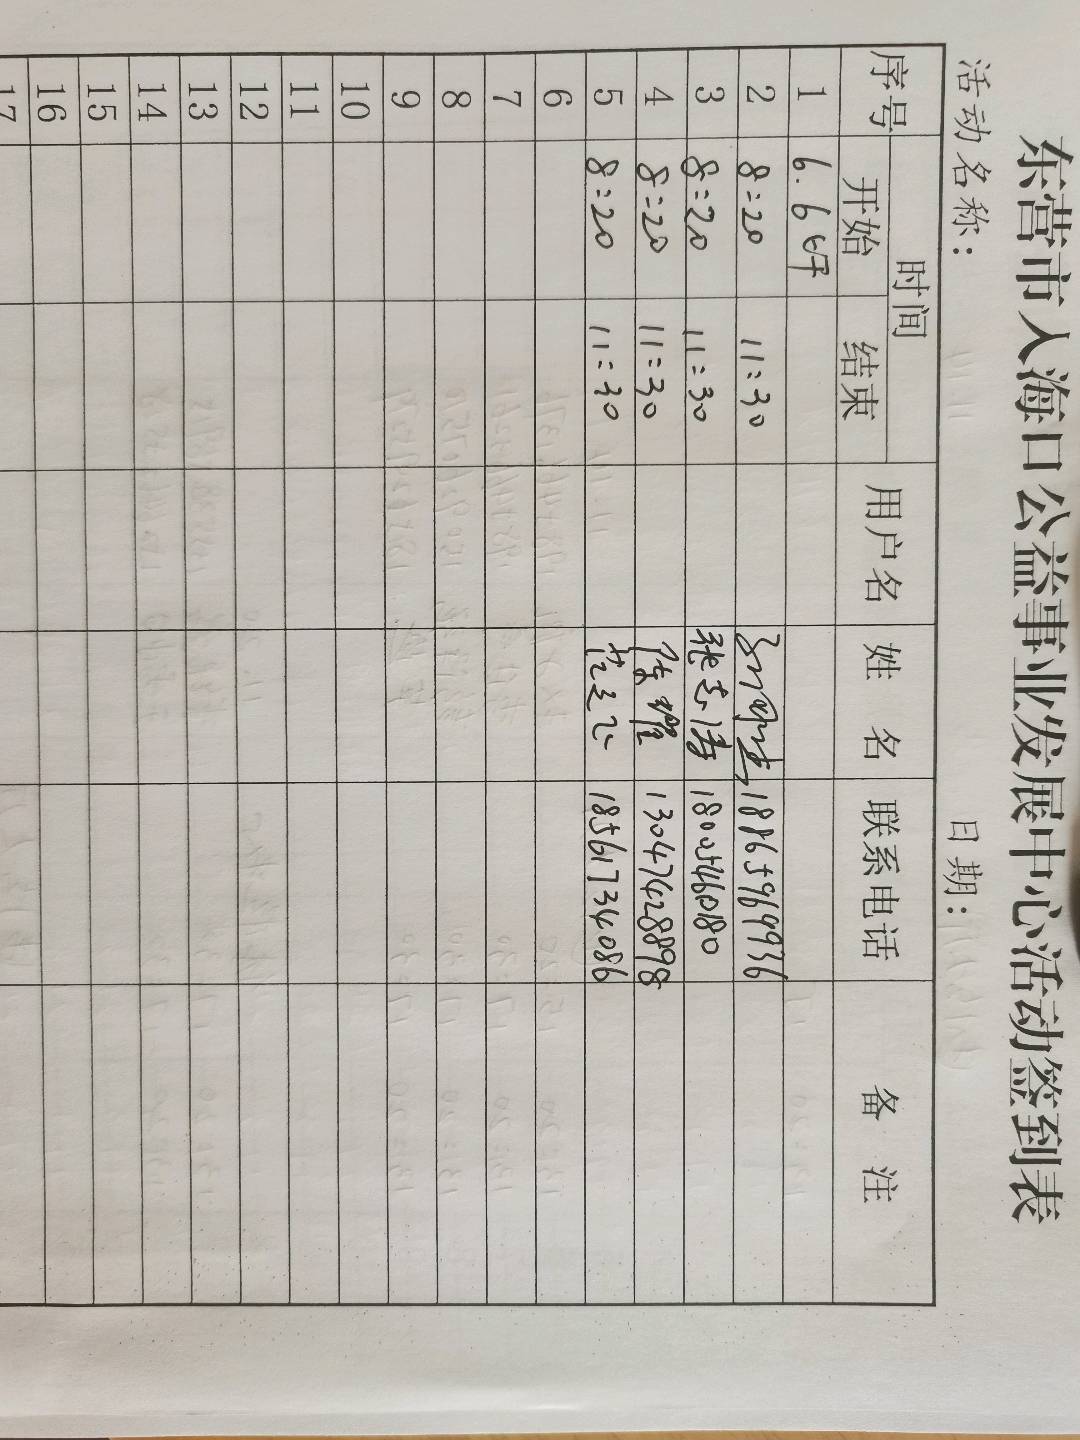 东营市人海口公益事业发展中心活动签到表
活动名称： 日期：
序号 时间 用户名 姓 名 联系电话 备 注
开始 结束
1 6.6
2 8:20 11:30 18865969936
3 8:20 11:30 张志涛 18005460180
4 8:20 11:30 13047428898
5 8:20 11:30 18561734086
6
7
8
9
10
11
12
13
14
15
16
17